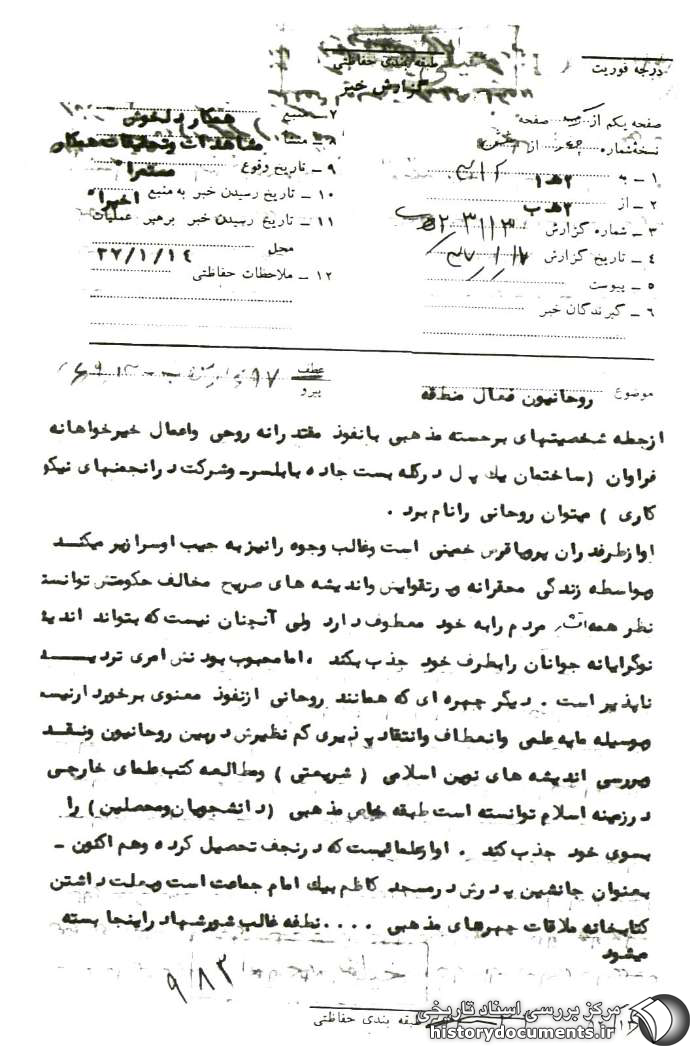 درجه فوریت
طبقه بندی حفاظتی
گزارش خبر
صفحه یکم از صفحه
نسخه شماره از
۱ ـ به ۲ هـ ۱
۲ ـ از ۲ هـ ب
۳ ـ شماره گزارش
۴ ـ تاریخ گزارش
۵ ـ پیوست
۶ ـ گیرندگان خبر
۷ ـ منبع همکار دلخوش
۸ ـ منشأ مشاهدات و تحقیقات همکار
۹ ـ تاریخ وقوع مستمرا"
۱۰ ـ تاریخ رسیدن خبر به منبع اخیرا"
۱۱ ـ تاریخ رسیدن خبر برهبر عملیات
محل ۳۷/۱/۱۴
۱۲ ـ ملاحظات حفاظتی
موضوع روحانیون فعال منطقه
عطف
پیرو
ازجمله شخصیتهای برجسته مذهبی بانفوذ مقتدرانه روحی واعمال خیرخواهانه
فراوان (ساختمان یك پل درکله بست جاده بابلسر وشرکت درانجمنهای نیکو
کاری ) میتوان روحانی رانام برد .
اوازطرفداران پروپاقرص خمینی است وغالب وجوه رانیزبه جیب اوسرازیر میکند
وبواسطه زندگی محقرانه و تقوایش واندیشه های صریح مخالف حکومتش توانسته
نظر همه مردم رابه خود معطوف دارد ولی آنچنان نیست که بتواند اندیشه
نوگرایانه جوانان رابطرف خود جذب بکند ، امامحبوب بودنش امری تردیـــد
ناپذیر است . دیگر چهره ای که همانند روحانی ازنفوذ معنوی برخورد ارنیست
وبوسیله مایه علمی وانعطاف وانتقادپذیری کم نظیرش دربین روحانیون ونقـد
وبررسی اندیشه های نوین اسلامی ( شریعتی ) ومطالعه کتب علمای خارجی
درزمینه اسلام توانسته است طبقه خاص مذهبی (دانشجویان ومحصلین ) را
بسوی خود جذب کند . اوازعلمائیست که درنجف تحصیل کرده وهم اکنون ـ
بعنوان جانشین پدرش درمسجد کاظم بیك امام جماعت است وبعلت داشتن
کتابخانه ملاقات چهرهای مذهبی .... نطفه غالب شورشهاد راینجا بسته
میشود
۹۸۳
طبقه بندی حفاظتی
مرکز بررسی اسناد تاریخی
historydocuments.ir